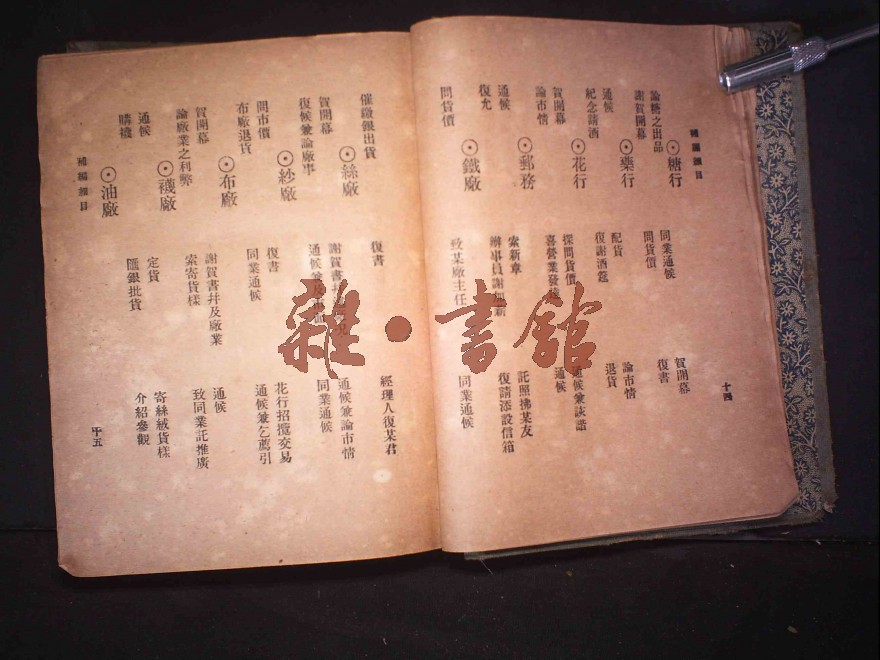 補編細目 十四
⊙糖行
論糖之出品 同業通候 賀開幕
謝賀開幕 問貨價 復書
⊙藥行
通候 配貨 論市情
紀念請酒 復謝酒筵 退貨
⊙花行
賀開幕 探問貨價 通候兼詼諧
論市情 喜營業發達 通候
⊙郵務
通候 索新章 託照拂某友
復允 辦事員謝加薪 復請添設信箱
⊙鐵廠
問貨價 致某廠主任 同業通候
催繳銀出貨 復書 經理人復某君
⊙絲廠
賀開幕 謝賀書幷 通候兼論市情
復候兼論廠事 通候兼及 同業通候
⊙紗廠
問市價 復書 花行招攬交易
布廠退貨 同業通候 通候兼乞薦引
⊙布廠
賀開幕 謝賀書幷及廠業 通候
論廠業之利弊 索寄貨樣 致同業託推廣
⊙襪廠
通候 定貨 寄絲絨貨樣
購襪 匯銀批貨 介紹參觀
⊙油廠
補編細目 十五
雜·書館